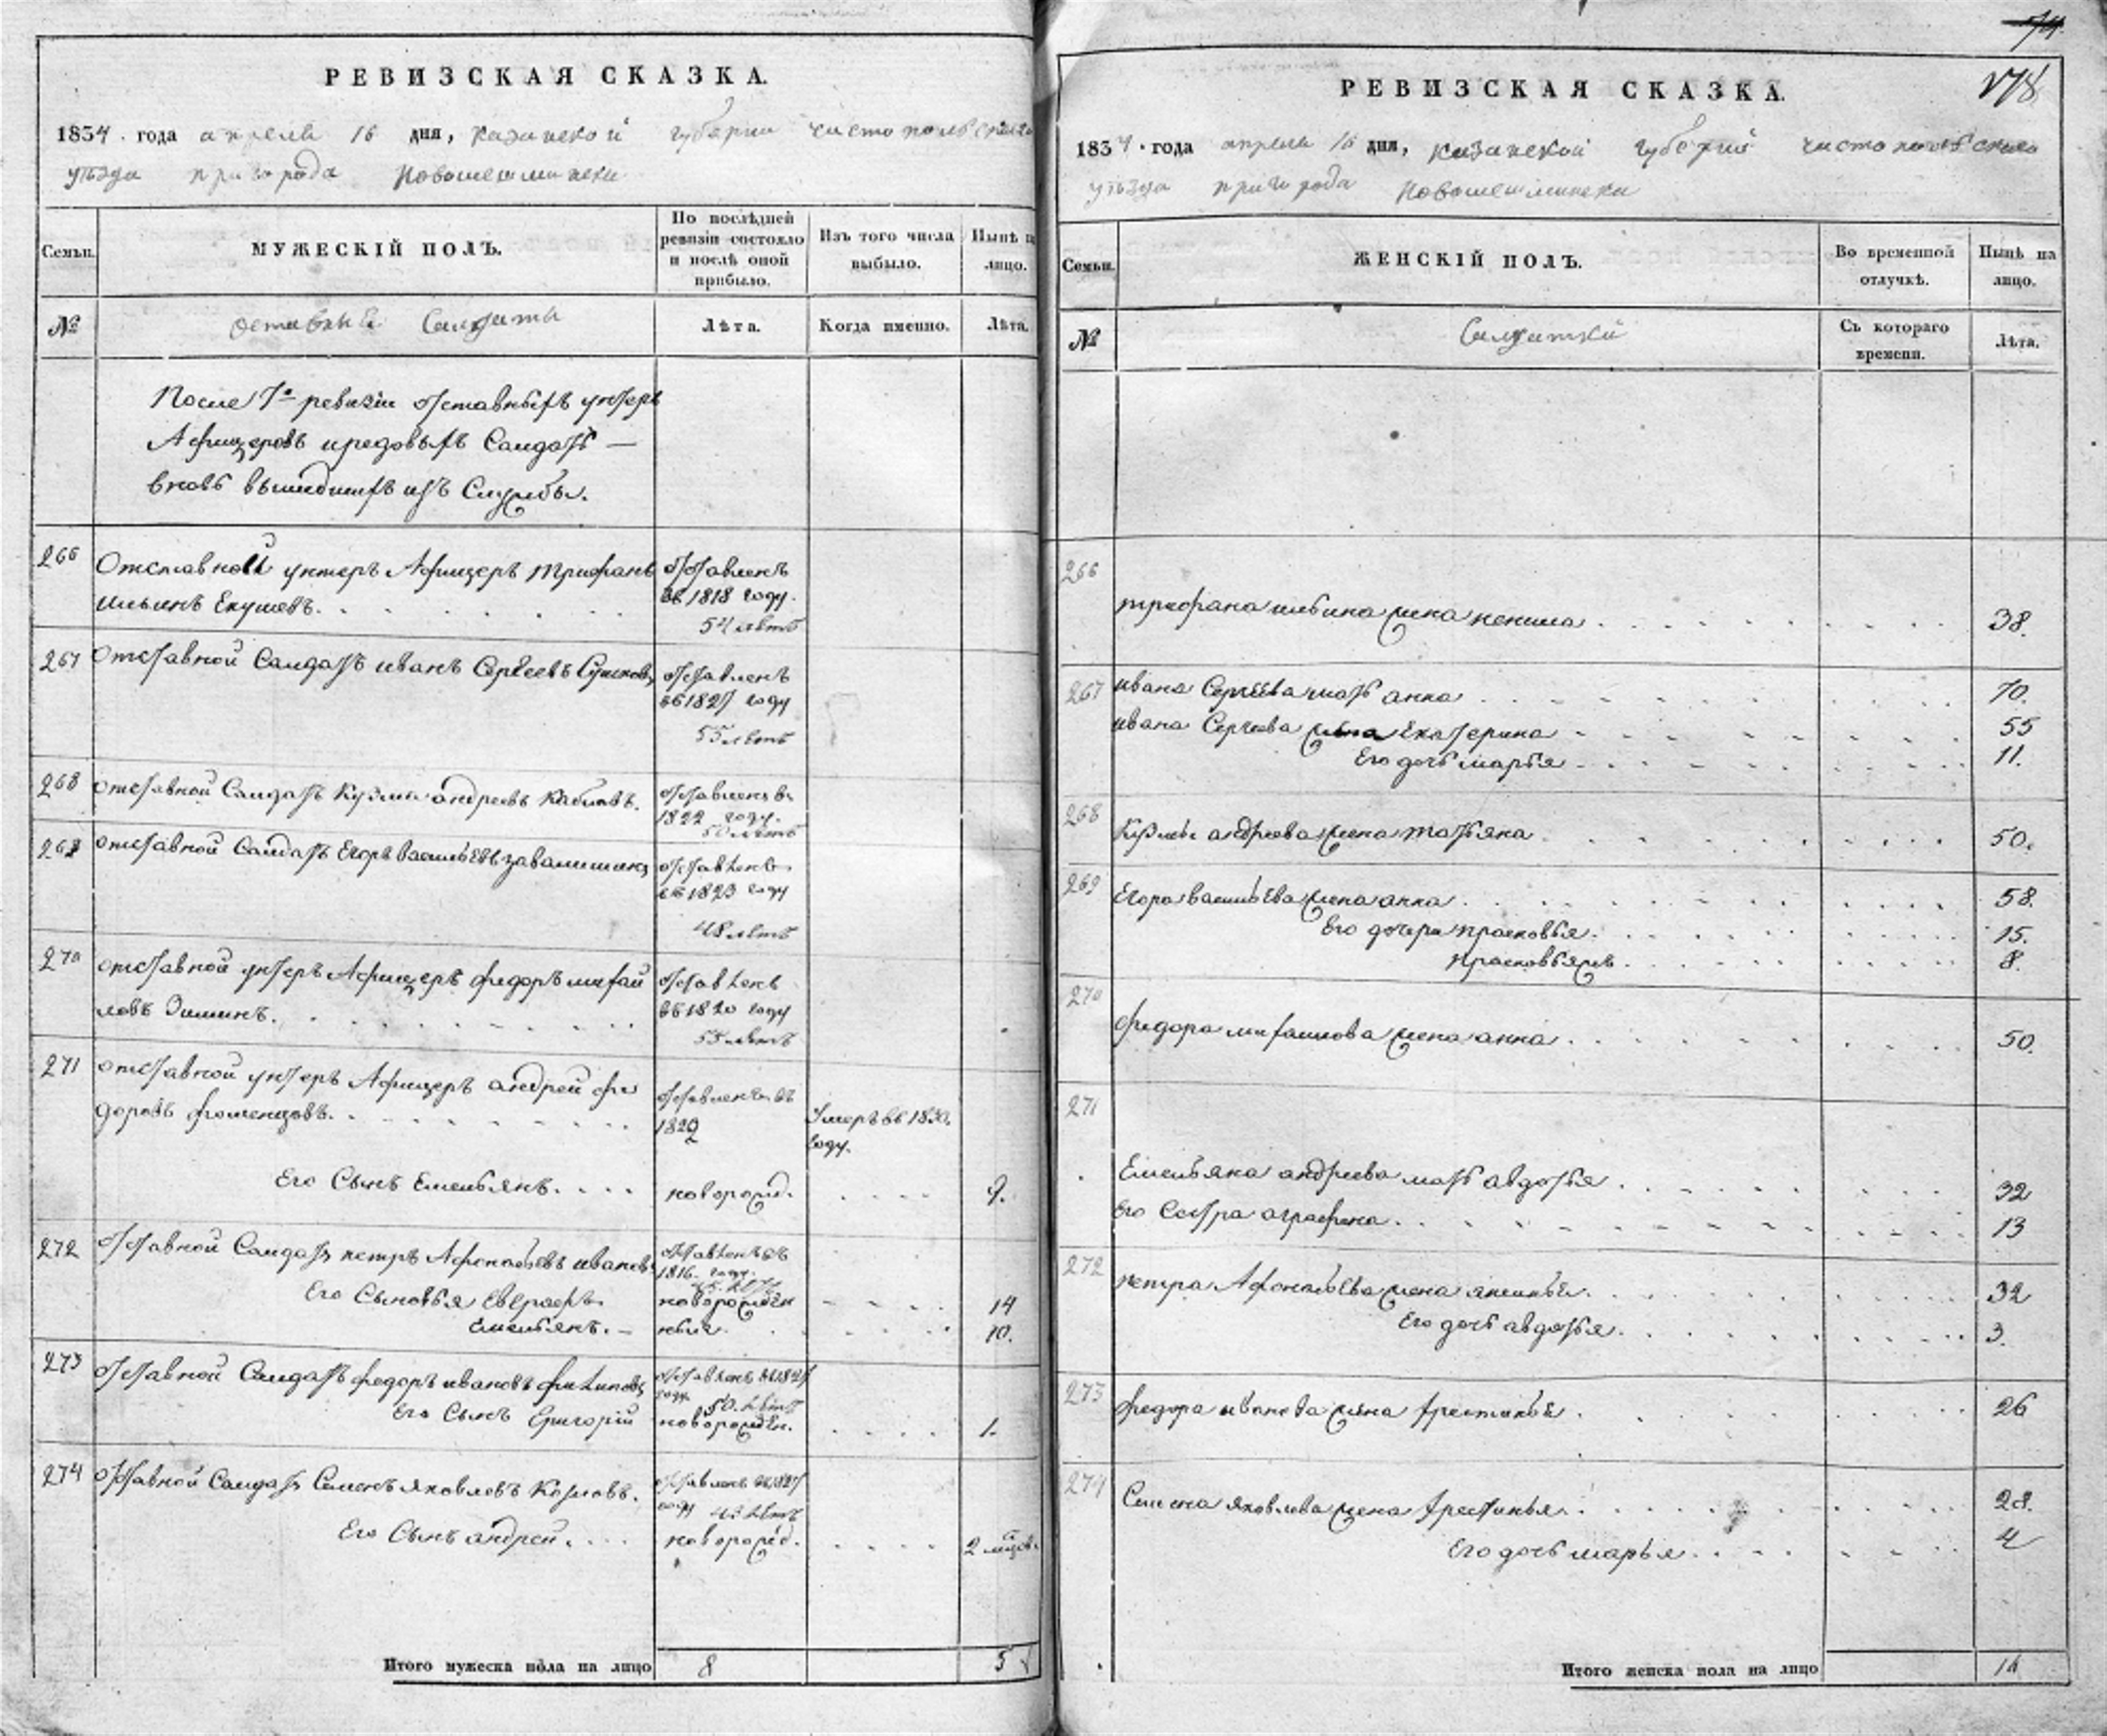 РЕВИЗСКАЯ СКАЗКА.
1834 года апреля 16 дня, казанской губернии чистопольскаго
уѣзда пригорода Новошешминска
Семьи.
МУЖЕСКІЙ ПОЛЪ.
По послѣдней ревизіи состояло и послѣ оной прибыло.
Изъ того числа выбыло.
Нынѣ на лицо.
№
отставные Салдаты
Лѣта.
Когда именно.
Лѣта.
После 7й ревизіи отставныхъ унтеръ
Афицеровъ и редовыхъ Салдатъ —
вновь вышедшихъ изъ Службы.
266 Отставной унтеръ Афицеръ Трифанъ
ильинъ Екушевъ.
отставленъ
въ 1818 году.
54 летъ
267 Отставной Салдатъ иванъ Сергеевъ
отставленъ
въ 1827 году
55 летъ
268 отставной Салдатъ Кузма андреевъ
отставленъ въ
1822 году.
50 летъ
269 отставной Салдатъ Егоръ васильевъ завалишинъ
отставленъ
въ 1823 году
48 летъ
270 отставной унтеръ Афицеръ федоръ михай
ловъ Зиминъ.
отставленъ
въ 1820 году
55 летъ
271 отставной унтеръ Афицеръ андрей фе
доровъ фоменцовъ.
отставленъ въ
1829
Умеръ въ 1830.
году.
Его Сынъ Емельянъ.
поворожд.
9.
272 отставной Салдатъ петръ Афонасьевъ ивановъ
отставленъ въ
1816. году.
Его Сыновья Евграфъ.
новорожден
14
Емельянъ. —
ные
10.
273 отставной Салдатъ федоръ ивановъ филиповъ
отставленъ въ 1827
году 50. летъ
Его Сынъ Григорій
новорожден.
1.
274 отставной Салдатъ Семенъ яковлевъ Козловъ.
отставленъ въ 1827
году летъ
Его Сынъ андрей.
новорожд.
2
Итого мужеска пола на лицо
8
5
178
РЕВИЗСКАЯ СКАЗКА.
1834 года апреля 16 дня, казанской губерніи чистопольскаго
уѣзда пригорода новошешминска
Семьи.
ЖЕНСКІЙ ПОЛЪ.
Во временной отлучкѣ.
Нынѣ на лицо.
№
Салдатки
Съ котораго времени.
Лѣта.
266
трифана ильина жена
38.
267 ивана Сергеева мать анна
70.
ивана Сергеева жена Екатерина
55
Его дочь марья
11.
268
Кузмы андреева жена татьяна
50.
269
Егора васильева жена анна
58.
Его дочери прасковья.
15.
прасковья жъ.
8.
270
федора михаилова жена анна
50.
271
Емельяна андреева мать авдотья
32
Его Сестра аграфена.
13
272
петра Афонасьева жена аксинья.
32
Его дочь авдотья.
3.
273
федора иванова жена хрестинья
26
274
Семена яковлева жена хрестинья.
28.
Его дочь марья.
4
Итого женска пола на лицо